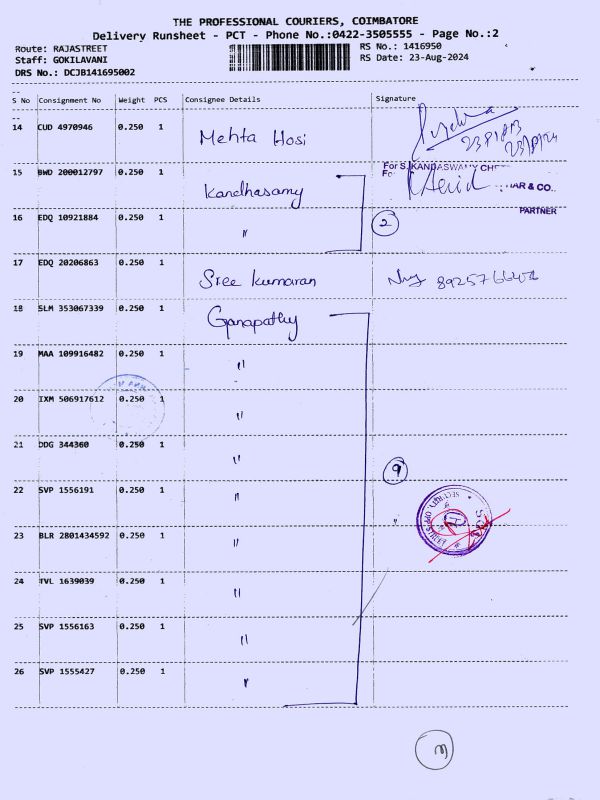 THE PROFESSIONAL COURIERS, COIMBATORE
Delivery Runsheet - PCT - Phone No.:0422-3505555 - Page No.:2
Route: RAJASTREET
RS No.: 1416950
Staff: GOKILAVANI
RS Date: 23-Aug-2024
DRS No.: DCJB141695002
--
S No Consignment No Weight PCS Consignee Details Signature
--
14 CUD 4970946 0.250 1 Mehta Hosi
15 BWD 200012797 0.250 1 Kandhasamy
For S. KANDASWAMY
AR & CO.
PARTNER
16 EDQ 10921884 0.250 1 " 2
17 EDQ 20206863 0.250 1 Sree kumaran
18 SLM 353067339 0.250 1 Ganapathy
19 MAA 109916482 0.250 1 "
20 IXM 506917612 0.250 1 "
21 DDG 344360 0.250 1 "
9
22 SVP 1556191 0.250 1 "
23 BLR 2801434592 0.250 1 "
24 TVL 1639039 0.250 1 "
25 SVP 1556163 0.250 1 "
26 SVP 1555427 0.250 1 "